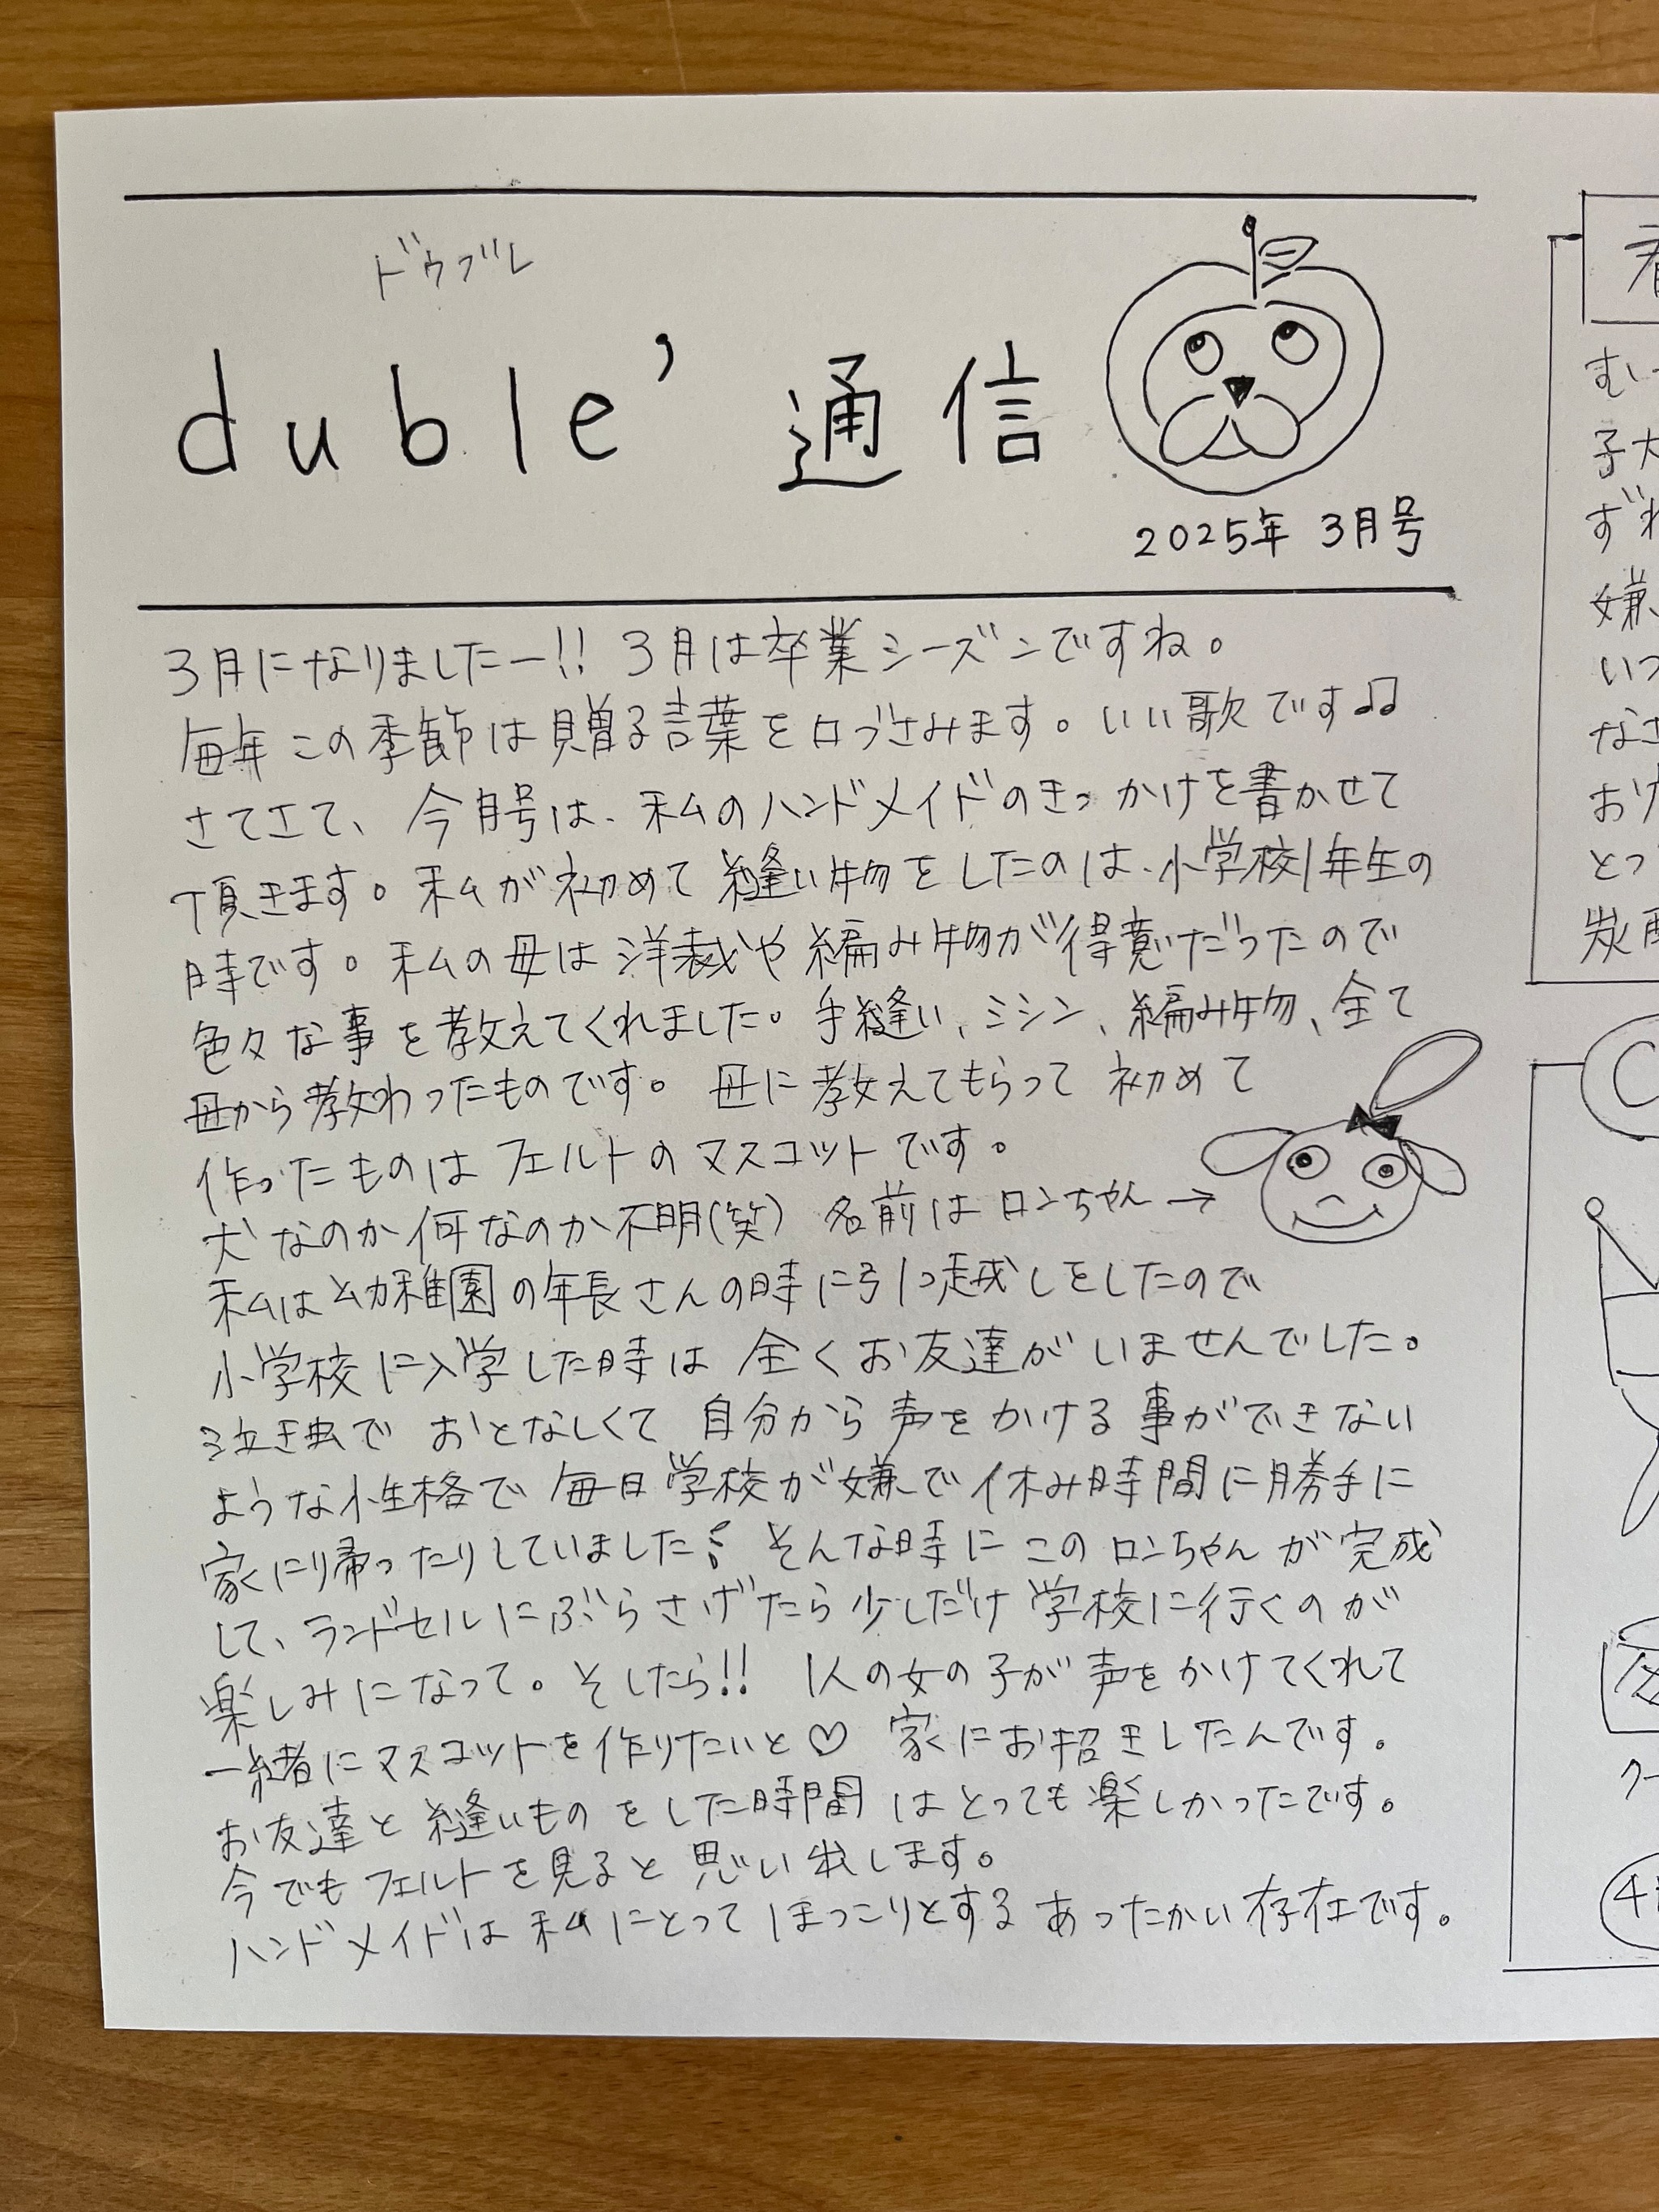 ドゥブレ
duble' 通信
2025年 3月号
3月になりましたー!! 3月は卒業シーズンですね。
毎年この季節は贈る言葉を口ずさみます。いい歌です♫
さてさて、今月号は、私のハンドメイドのきっかけを書かせて
頂きます。私が初めて縫い物をしたのは、小学校1年生の
時です。私の母は洋裁や編み物が得意だったので
色々な事を教えてくれました。手縫い、ミシン、編み物、全て
母から教わったものです。母に教えてもらって初めて
作ったものはフェルトのマスコットです。
犬なのか何なのか不明(笑) 名前はロンちゃん→
私は幼稚園の年長さんの時に引っ越しをしたので
小学校に入学した時は全くお友達がいませんでした。
泣き虫でおとなしくて自分から声をかける事ができない
ような性格で毎日学校が嫌で休み時間に勝手に
家に帰ったりしていました そんな時にこのロンちゃんが完成
して、ランドセルにぶらさげたら少しだけ学校に行くのが
楽しみになって。そしたら!! 1人の女の子が声をかけてくれて
一緒にマスコットを作りたいと♡ 家にお招きしたんです。
お友達と縫いものをした時間はとっても楽しかったです。
今でもフェルトを見ると思い出します。
ハンドメイドは私にとってほっこりとするあったかい存在です。
むい
子犬
ずれ
嫌
いつ
なさ
おけ
とっ
炭酸
C
クー
4